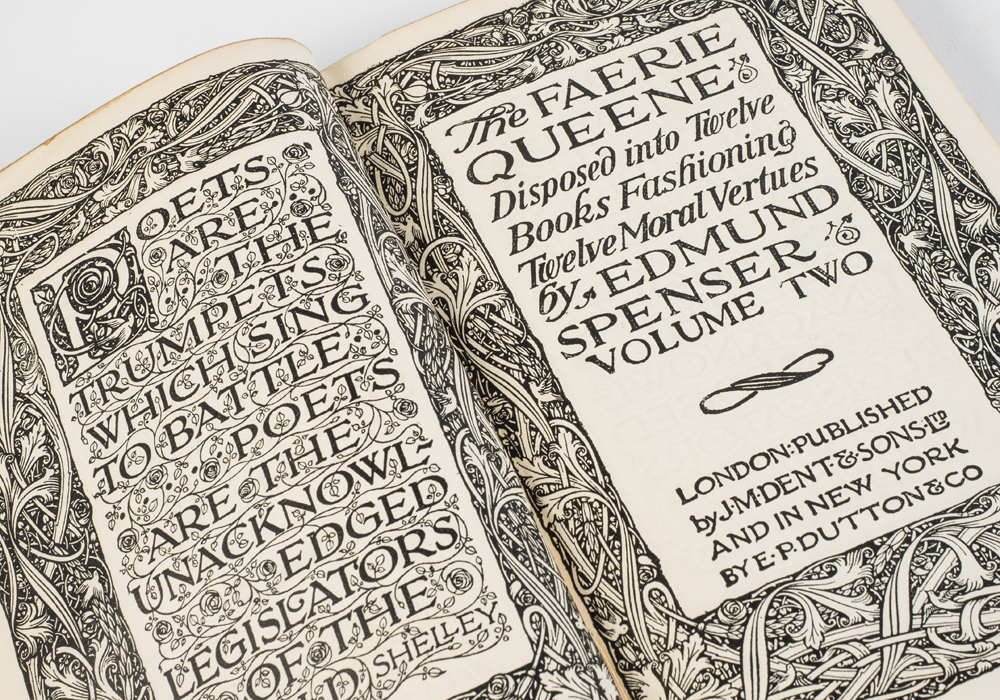 POETS
ARE THE
TRUMPETS
WHICH SING
TO BATTLE
POETS
ARE THE
UNACKNOWL-
EDGED
LEGISLATORS
OF THE
SHELLEY
The FAERIE
QUEENE
Disposed into Twelve
Books Fashioning
Twelve Moral Vertues
by EDMUND
SPENSER
VOLUME TWO
LONDON: PUBLISHED
by J. M. DENT & SONS LTD
AND IN NEW YORK
BY E. P. DUTTON & CO